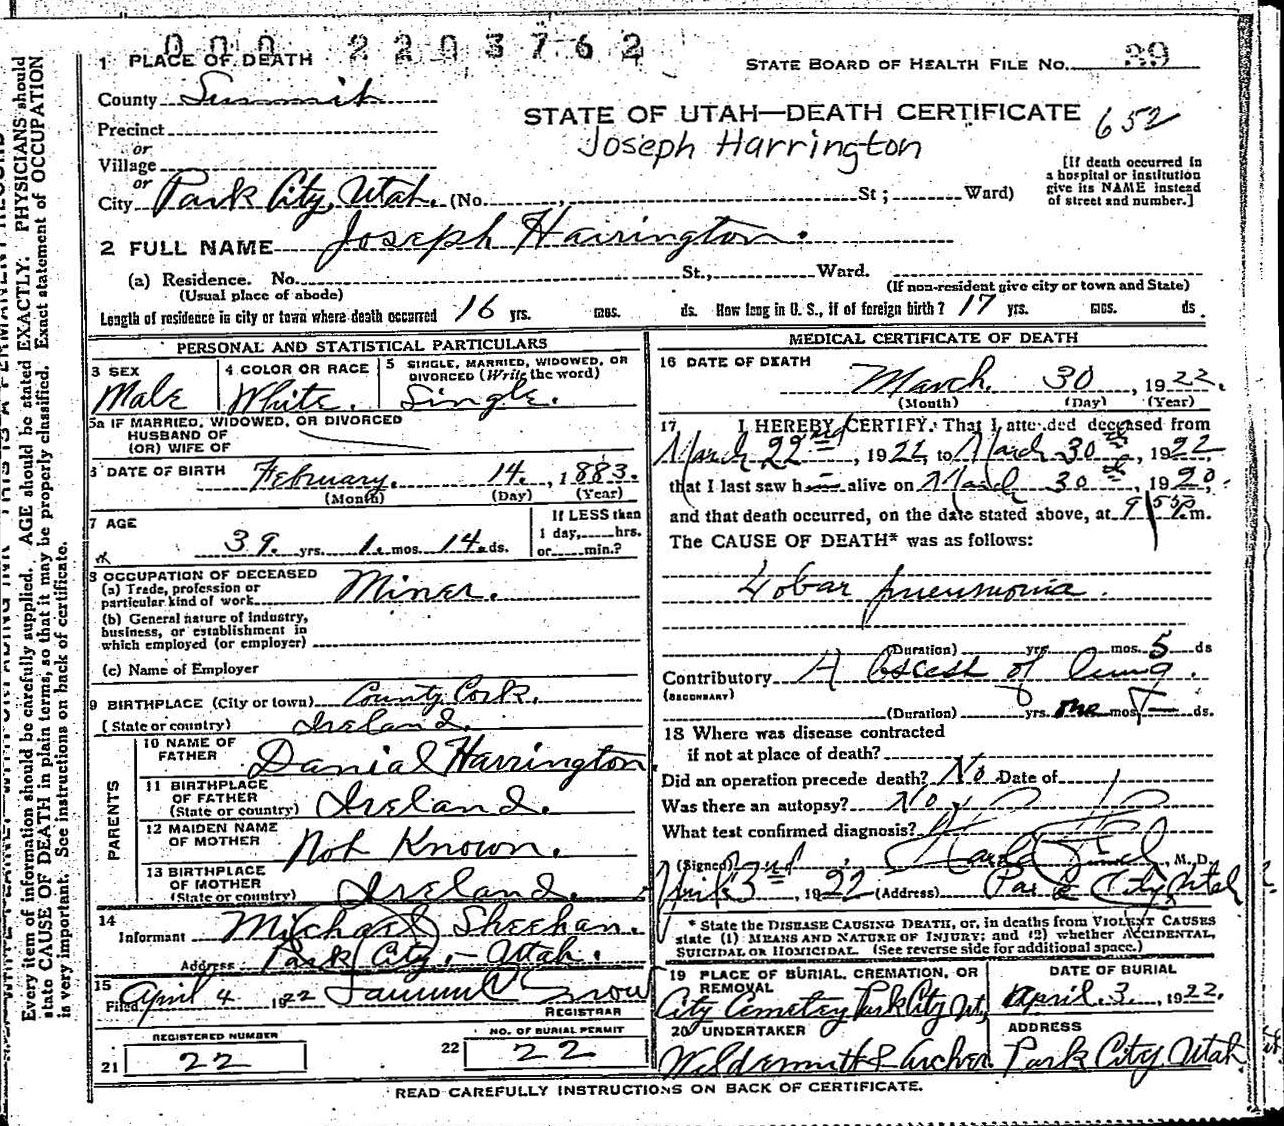 000 2203762
1 PLACE OF DEATH
STATE BOARD OF HEALTH FILE No. 39
County Summit
STATE OF UTAH—DEATH CERTIFICATE 652
Precinct
Joseph Harrington
or
Village
or
City Park City, Utah. (No. St; Ward)
[If death occurred in
a hospital or institution
give its NAME instead
of street and number.]
2 FULL NAME Joseph Harrington.
(a) Residence. No. St., Ward.
(Usual place of abode)
(If non-resident give city or town and State)
Length of residence in city or town where death occurred 16 yrs. mos. ds. How long in U. S., if of foreign birth? 17 yrs. mos. ds.
PERSONAL AND STATISTICAL PARTICULARS
3 SEX
Male
4 COLOR OR RACE
White.
5 SINGLE, MARRIED, WIDOWED, OR
DIVORCED (Write the word)
Single.
5a IF MARRIED, WIDOWED, OR DIVORCED
HUSBAND OF
(OR) WIFE OF
6 DATE OF BIRTH February. 14., 1883.
(Month) (Day) (Year)
7 AGE
39. yrs. 1. mos. 14. ds.
If LESS than
1 day, hrs.
or min.?
8 OCCUPATION OF DECEASED
(a) Trade, profession or
particular kind of work Miner.
(b) General nature of industry,
business, or establishment in
which employed (or employer)
(c) Name of Employer
9 BIRTHPLACE (City or town) County Cork.
(State or country) Ireland.
PARENTS
10 NAME OF
FATHER Danial Harrington.
11 BIRTHPLACE
OF FATHER
(State or country) Ireland.
12 MAIDEN NAME
OF MOTHER Not Known.
13 BIRTHPLACE
OF MOTHER
(State or country) Ireland.
14
Informant Michael Sheehan.
Address Park City, - Utah.
15
Filed April 4 1922 Snow
REGISTRAR
REGISTERED NUMBER
21 22
NO. OF BURIAL PERMIT
22 22
MEDICAL CERTIFICATE OF DEATH
16 DATE OF DEATH
March. 30, 1922.
(Month) (Day) (Year)
17 I HEREBY CERTIFY, That I attended deceased from
March 22nd, 1922, to March 30th, 1922,
that I last saw h alive on March 30th, 1920,
and that death occurred, on the date stated above, at 9 55 P.m.
The CAUSE OF DEATH* was as follows:
Lobar pneumonia.
(Duration) yrs. mos. 5 ds
Contributory Abscess of lung.
(SECONDARY)
(Duration) yrs. one mos. ds.
18 Where was disease contracted
if not at place of death?
Did an operation precede death? No Date of
Was there an autopsy? No
What test confirmed diagnosis?
(Signed) M. D.
April 3rd, 1922 (Address) Park City, Utah
* State the DISEASE CAUSING DEATH, or, in deaths from VIOLENT CAUSES
state (1) MEANS AND NATURE OF INJURY; and (2) whether ACCIDENTAL,
SUICIDAL OR HOMICIDAL. (See reverse side for additional space.)
19 PLACE OF BURIAL, CREMATION, OR
REMOVAL
City Cemetery Park City Ut,
DATE OF BURIAL
April. 3., 1922.
20 UNDERTAKER
Weldermuth & Archer
ADDRESS
Park City, Utah
READ CAREFULLY INSTRUCTIONS ON BACK OF CERTIFICATE.
Every item of information should be carefully supplied. AGE should be stated EXACTLY. PHYSICIANS should
state CAUSE OF DEATH in plain terms, so that it may be properly classified. Exact statement of OCCUPATION
is very important. See instructions on back of certificate.